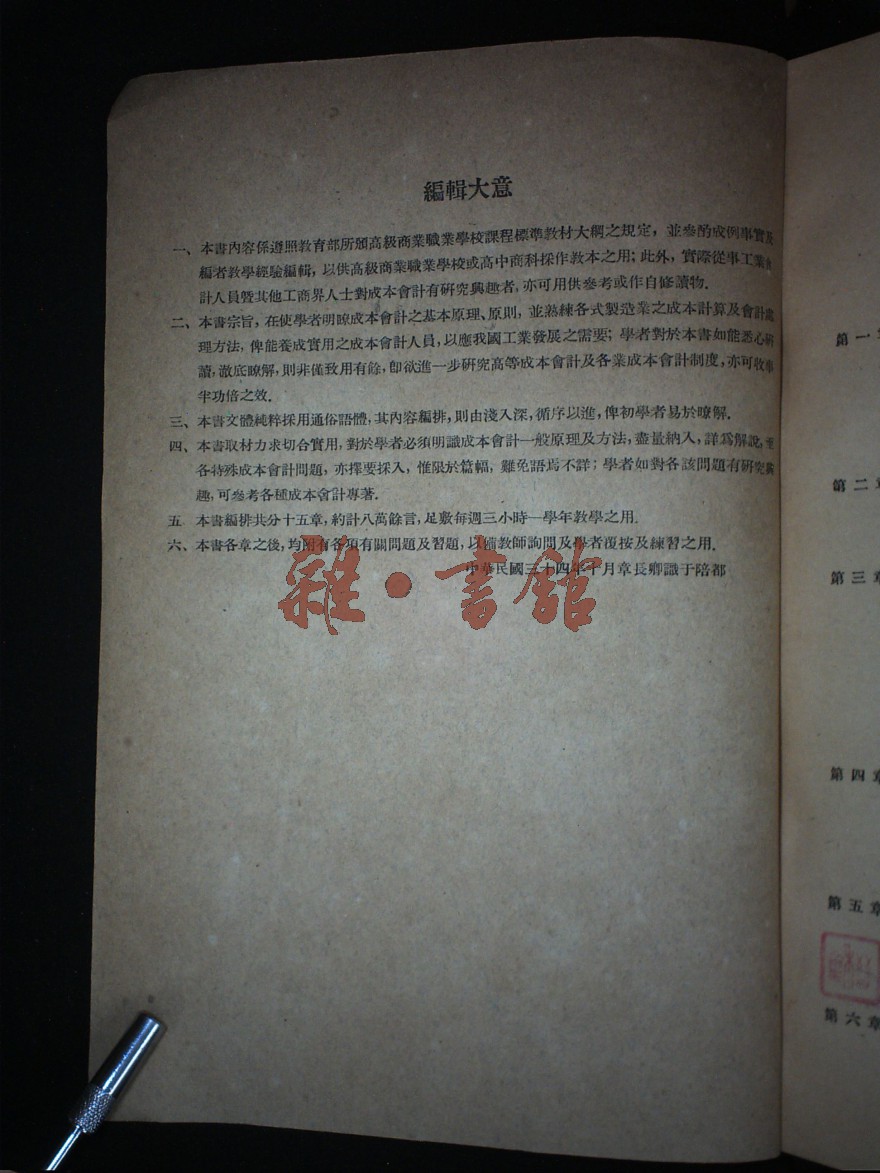 編輯大意
一、本書內容係遵照教育部所頒高級商業職業學校課程標準教材大綱之規定，並參酌成例事實及
編者教學經驗編輯，以供高級商業職業學校或高中商科採作教本之用；此外，實際從事工業會
計人員暨其他工商界人士對成本會計有研究興趣者，亦可用供參考或作自修讀物．
二、本書宗旨，在使學者明瞭成本會計之基本原理、原則，並熟練各式製造業之成本計算及會計處
理方法，俾能養成實用之成本會計人員，以應我國工業發展之需要；學者對於本書如能悉心研
讀，澈底瞭解，則非僅致用有餘，卽欲進一步研究高等成本會計及各業成本會計制度，亦可收事
半功倍之效．
三、本書文體純粹採用通俗語體，其內容編排，則由淺入深，循序以進，俾初學者易於瞭解．
四、本書取材力求切合實用，對於學者必須明識成本會計一般原理及方法，盡量納入，詳爲解說，至
各特殊成本會計問題，亦擇要採入，惟限於篇幅，難免語焉不詳；學者如對各該問題有研究興
趣，可參考各種成本會計專著．
五　本書編排共分十五章，約計八萬餘言，足敷每週三小時一學年教學之用．
六、本書各章之後，均附有各項有關問題及習題，以備教師詢問及學者復按及練習之用．
中華民國三十四年十月章長卿識于陪都
雜·書館
第一章
第二章
第三章
第四章
第五章
第六章